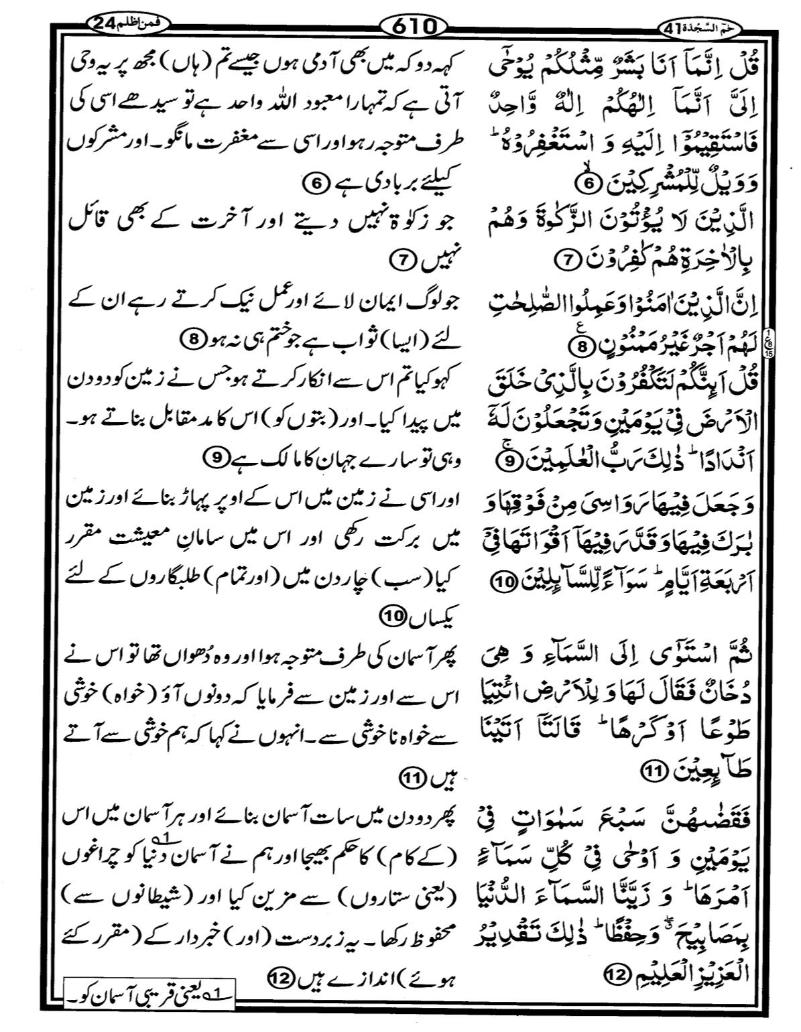 حٰمٓ السَّجْدَة 41
610
فمن اظلم 24
قُلْ اِنَّمَاۤ اَنَا بَشَرٌ مِّثْلُكُمْ يُوْحٰۤى
اِلَىَّ اَنَّمَاۤ اِلٰهُكُمْ اِلٰهٌ وَّاحِدٌ
فَاسْتَقِيْمُوْۤا اِلَيْهِ وَ اسْتَغْفِرُوْهُ ؕ
وَوَيْلٌ لِّلْمُشْرِكِيْنَ ۙ 6
الَّذِيْنَ لَا يُؤْتُوْنَ الزَّكٰوةَ وَهُمْ
بِالْاٰخِرَةِ هُمْ كٰفِرُوْنَ 7
اِنَّ الَّذِيْنَ اٰمَنُوْا وَعَمِلُوا الصّٰلِحٰتِ
لَهُمْ اَجْرٌ غَيْرُ مَمْنُوْنٍ ع 8
قُلْ اَىِٕنَّكُمْ لَتَكْفُرُوْنَ بِالَّذِىْ خَلَقَ
الْاَرْضَ فِىْ يَوْمَيْنِ وَتَجْعَلُوْنَ لَهٗۤ
اَنْدَادًا ؕ ذٰلِكَ رَبُّ الْعٰلَمِيْنَ ۚ 9
وَجَعَلَ فِيْهَا رَوَاسِىَ مِنْ فَوْقِهَا وَ
بٰرَكَ فِيْهَا وَقَدَّرَ فِيْهَاۤ اَقْوَاتَهَا فِىْۤ
اَرْبَعَةِ اَيَّامٍ ؕ سَوَآءً لِّلسَّآىِٕلِيْنَ 10
ثُمَّ اسْتَوٰۤى اِلَى السَّمَآءِ وَ هِىَ
دُخَانٌ فَقَالَ لَهَا وَ لِلْاَرْضِ ائْتِيَا
طَوْعًا اَوْ كَرْهًا ؕ قَالَتَاۤ اَتَيْنَا
طَآىِٕعِيْنَ 11
فَقَضٰىهُنَّ سَبْعَ سَمٰوَاتٍ فِىْ
يَوْمَيْنِ وَ اَوْحٰى فِىْ كُلِّ سَمَآءٍ
اَمْرَهَا ؕ وَ زَيَّنَّا السَّمَآءَ الدُّنْيَا
بِمَصَابِيْحَ ۖ وَحِفْظًا ؕ ذٰلِكَ تَقْدِيْرُ
الْعَزِيْزِ الْعَلِيْمِ 12
کہہ دو کہ میں بھی آدمی ہوں جیسے تم (ہاں) مجھ پر یہ وحی
آتی ہے کہ تمہارا معبود اللہ واحد ہے تو سیدھے اسی کی
طرف متوجہ رہو اور اسی سے مغفرت مانگو۔ اور مشرکوں
کیلئے بربادی ہے 6
جو زکوٰۃ نہیں دیتے اور آخرت کے بھی قائل
نہیں 7
جو لوگ ایمان لائے اور عمل نیک کرتے رہے ان کے
لئے (ایسا) ثواب ہے جو ختم ہی نہ ہو 8
کہو کیا تم اس سے انکار کرتے ہو جس نے زمین کو دو دن
میں پیدا کیا۔ اور (بتوں کو) اس کا مد مقابل بناتے ہو۔
وہی تو سارے جہان کا مالک ہے 9
اور اسی نے زمین میں اس کے اوپر پہاڑ بنائے اور زمین
میں برکت رکھی اور اس میں سامانِ معیشت مقرر
کیا (سب) چار دن میں (اور تمام) طلبگاروں کے لئے
یکساں 10
پھر آسمان کی طرف متوجہ ہوا اور وہ دُھواں تھا تو اس نے
اس سے اور زمین سے فرمایا کہ دونوں آؤ (خواہ) خوشی
سے خواہ ناخوشی سے۔ انہوں نے کہا کہ ہم خوشی سے آتے
ہیں 11
پھر دو دن میں سات آسمان بنائے اور ہر آسمان میں اس
(کے کام) کا حکم بھیجا اور ہم نے آسمان دنیا 1؎ کو چراغوں
(یعنی ستاروں) سے مزین کیا اور (شیطانوں سے)
محفوظ رکھا۔ یہ زبردست (اور) خبردار کے (مقرر کئے
ہوئے) اندازے ہیں 12
1؎ یعنی قریبی آسمان کو۔